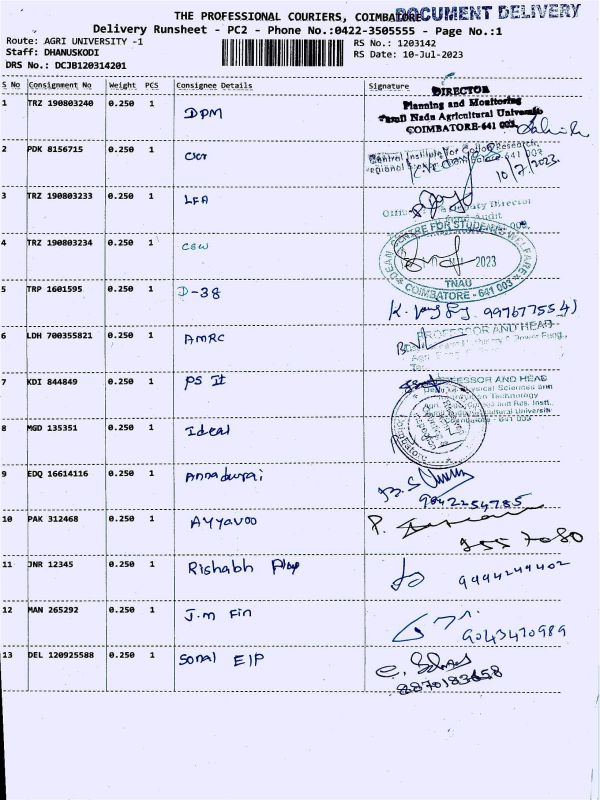 THE PROFESSIONAL COURIERS, COIMBATORE
DOCUMENT DELIVERY
Delivery Runsheet - PC2 - Phone No.:0422-3505555 - Page No.:1
Route: AGRI UNIVERSITY -1
RS No.: 1203142
Staff: DHANUSKODI
RS Date: 10-Jul-2023
DRS No.: DCJB120314201
S No Consignment No Weight PCS Consignee Details Signature
DIRECTOR
Planning and Monitoring
Tamil Nadu Agricultural University
COIMBATORE-641 003
1 TRZ 190803240 0.250 1 DPM
2 PDK 8156715 0.250 1
Central Institute For Cotton Research,
10/7/2023
3 TRZ 190803233 0.250 1 LFA
4 TRZ 190803234 0.250 1 CSW
DEAN CENTRE FOR STUDENTS WELFARE
2023
TNAU
COIMBATORE - 641 003
5 TRP 1601595 0.250 1 D-38
9976777554
6 LDH 700355821 0.250 1 AMRC
PROFESSOR AND HEAD
7 KDI 844849 0.250 1 PS IT
PROFESSOR AND HEAD
Physical Sciences and
Information Technology
8 MGD 135351 0.250 1 Ideal
9 EDQ 16614116 0.250 1 Annadurai
9042254785
10 PAK 312468 0.250 1 Ayyavoo
11 JNR 12345 0.250 1 Rishabh
9494249402
12 MAN 265292 0.250 1 J.m Fin
9043470989
13 DEL 120925588 0.250 1 Sonal EIP
8870183658